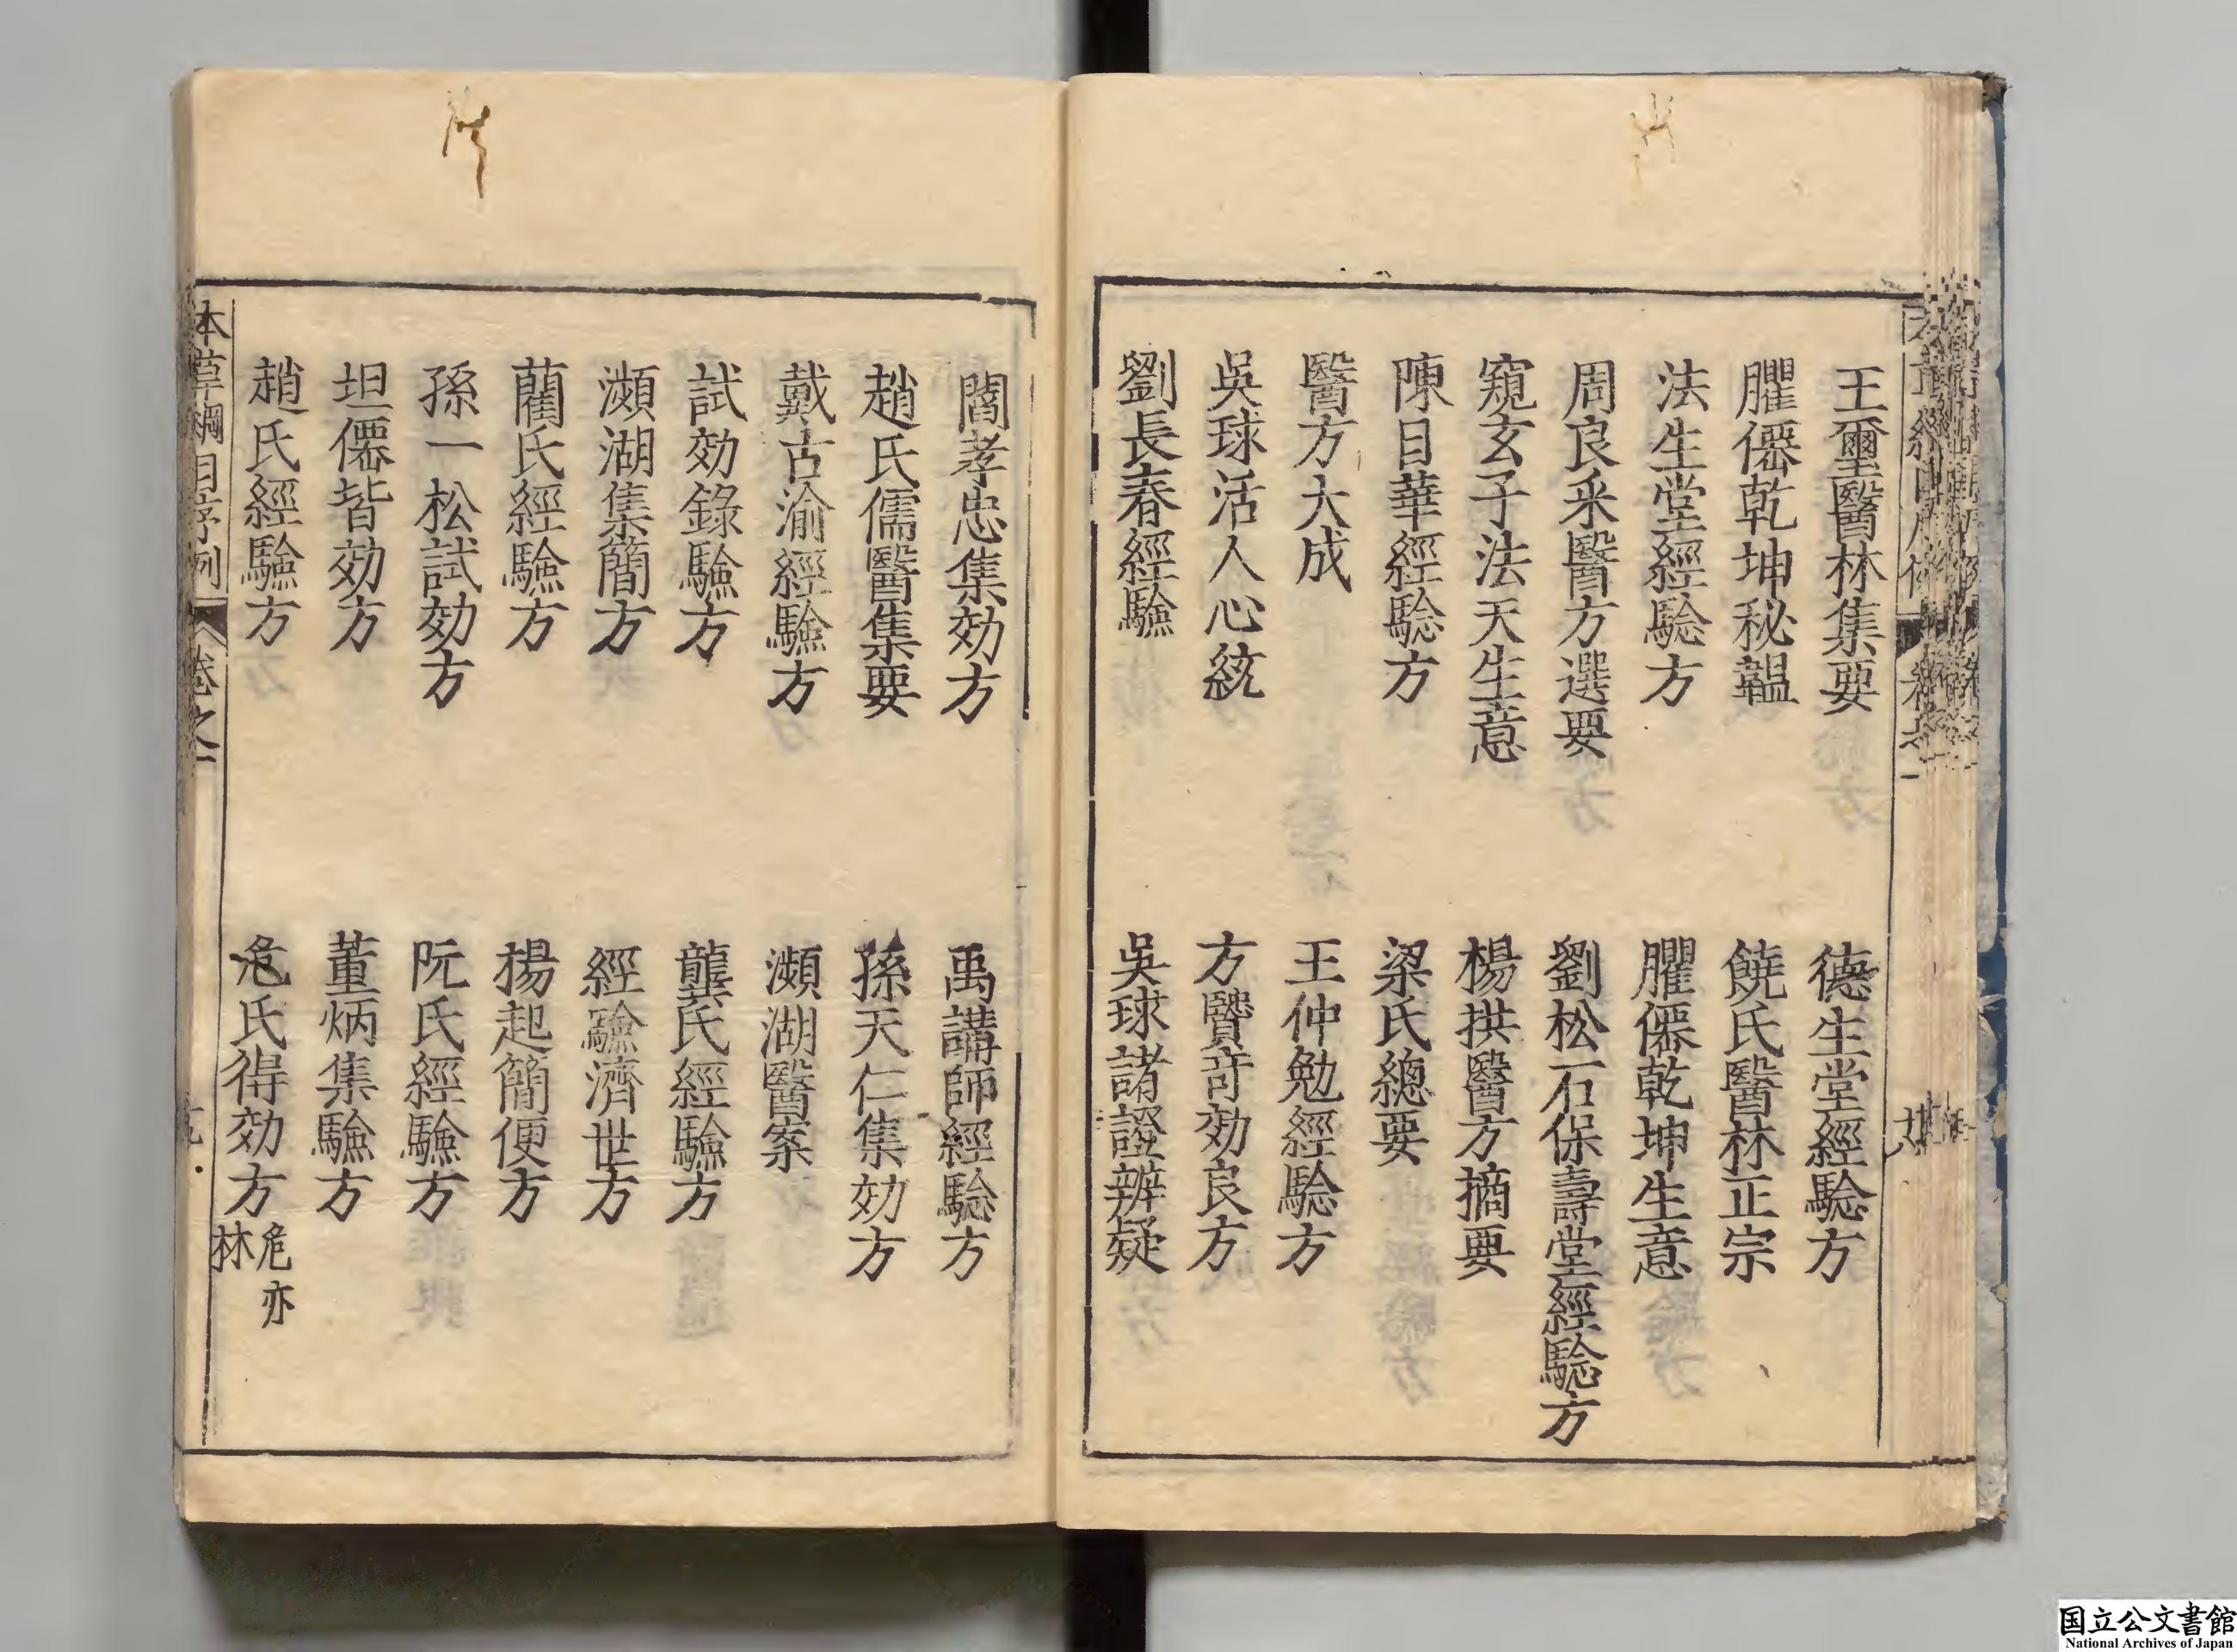 王璽醫林集要
德生堂經驗方
臞僊乾坤秘韞
饒氏醫林正宗
法生堂經驗方
臞僊乾坤生意
周良采醫方選要
劉松石保壽堂經驗方
窺玄子法天生意
楊拱醫方摘要
陳日華經驗方
梁氏總要
醫方大成
王仲勉經驗方
吳球活人心統
方賢奇効良方
劉長春經驗
吳球諸證辨疑
閻孝忠集効方
禹講師經驗方
趙氏儒醫集要
孫天仁集効方
戴古渝經驗方
瀕湖醫案
試効錄驗方
龔氏經驗方
瀕湖集簡方
經驗濟世方
藺氏經驗方
楊起簡便方
孫一松試効方
阮氏經驗方
坦僊皆効方
董炳集驗方
趙氏經驗方
危氏得効方 危亦林
本草綱目序例 卷之一
国立公文書館
National Archives of Japan